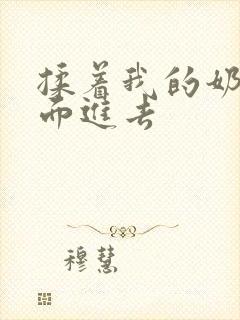 揉着我的奶
而进去
穆慧